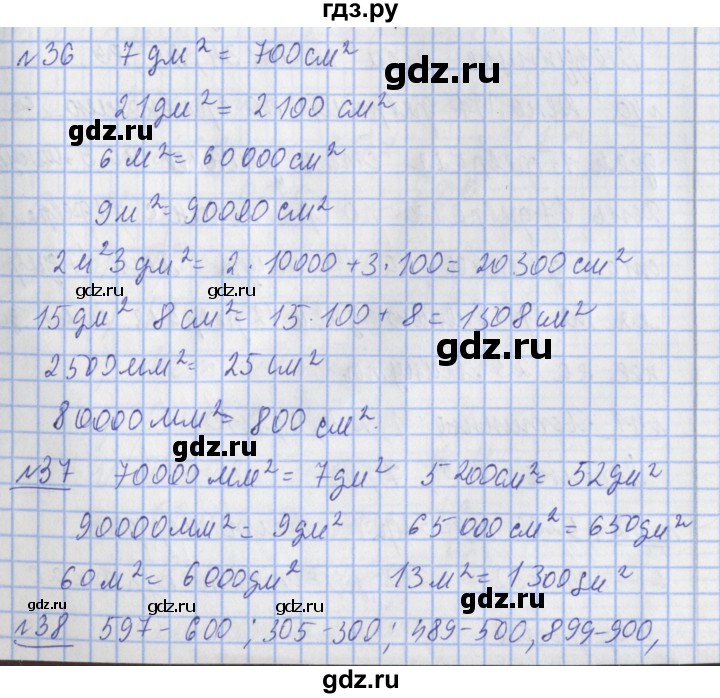 гдз.ру
№36 7 дм² = 700 см²
gdz.ru
21 дм² = 2100 см²
gdz.ru
6 м² = 60000 см²
9 м² = 90000 см²
2 м² 3 дм² = 2 · 10000 + 3 · 100 = 20300 см²
gdz.ru gdz.ru
15 дм² 8 см² = 15 · 100 + 8 = 1508 см²
gdz.ru
2500 мм² = 25 см²
80000 мм² = 800 см².
gdz.ru
№37 70000 мм² = 7 дм² 5200 см² = 52 дм²
90000 мм² = 9 дм² 65000 см² = 650 дм²
60 м² = 6000 дм² 13 м² = 1300 дм²
gdz.ru gdz.ru gdz.ru
№38 597 - 600 ; 305 - 300 ; 489 - 500, 899 - 900,
gdz.ru